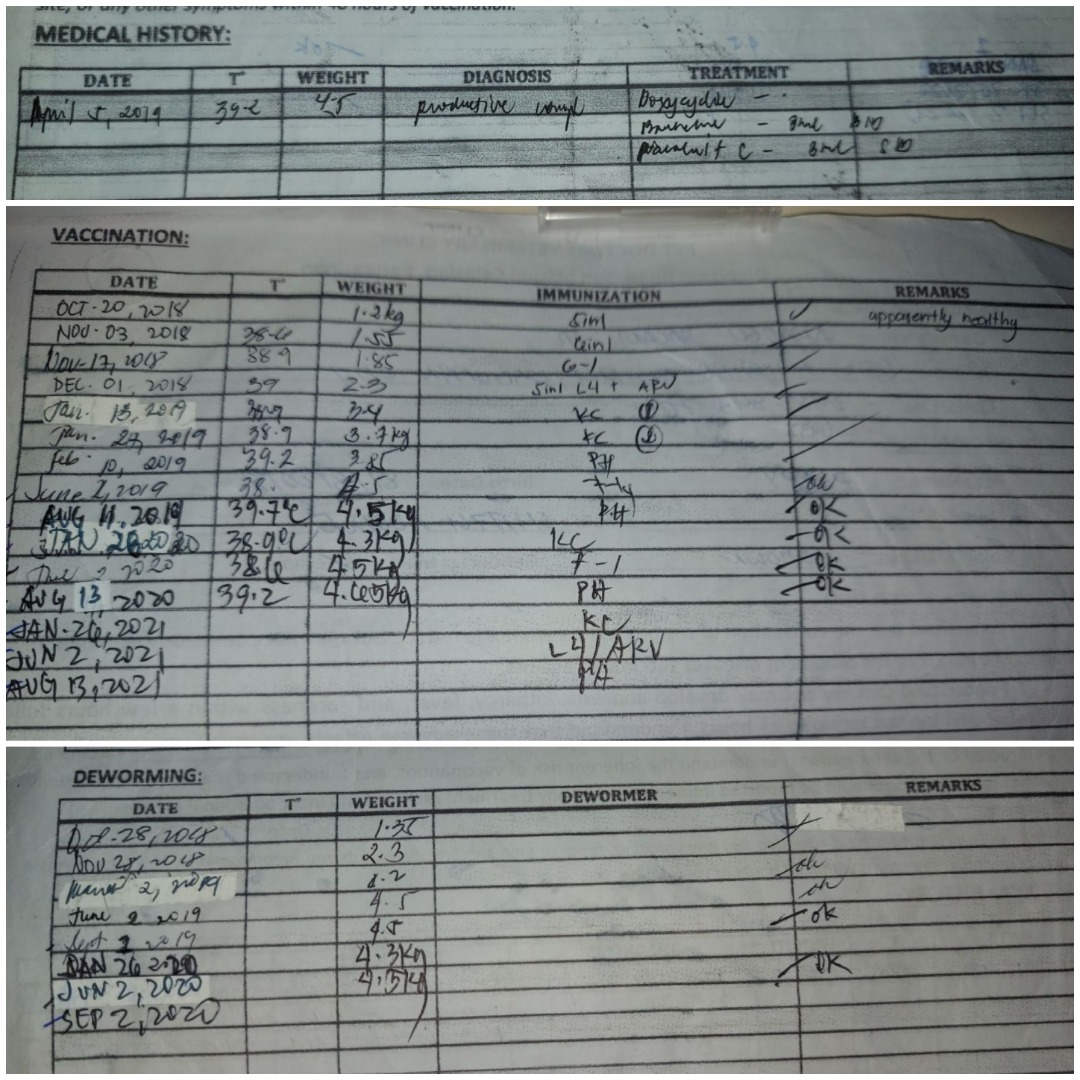 site, or any other symptoms within 48 hours of vaccination.
MEDICAL HISTORY:
DATE T° WEIGHT DIAGNOSIS TREATMENT REMARKS
April 5, 2019 39.2 4.5 productive cough Doxycycline -
- 3ml BID
C - 3ml SID
VACCINATION:
DATE T° WEIGHT IMMUNIZATION REMARKS
OCT-20, 2018 1.2kg 5in1 apparently healthy
NOV-03, 2018 38.6 1.55 6in1
Nov-17, 2018 38.9 1.85 6-1
DEC. 01, 2018 39 2.3 5in1 L4 + ARV
Jan. 13, 2019 3.4 KC 1
Jan. 27, 2019 38.9 3.7kg KC 2
Feb. 10, 2019 39.2 3.85 PH
June 2, 2019 38. 4.5 ok
AUG 11. 2019 39.7°C 4.5kg PH OK
JAN 26 2020 38.9°C 4.3kg KC OK
June 2 2020 38.6 4.5kg 7-1 OK
AUG 13, 2020 39.2 4.65kg PH OK
JAN-26, 2021 KC
JUN 2, 2021 L4/ARV
AUG 13, 2021 PH
DEWORMING:
DATE T° WEIGHT DEWORMER REMARKS
Oct-28, 2018 1.35
Nov 28, 2018 2.3 ok
March 2, 2019 4.2 ok
June 2 2019 4.5 ok
Sept 2 2019 4.5
JAN 26 2020 4.3kg OK
JUN 2, 2020 4.5kg
SEP 2, 2020